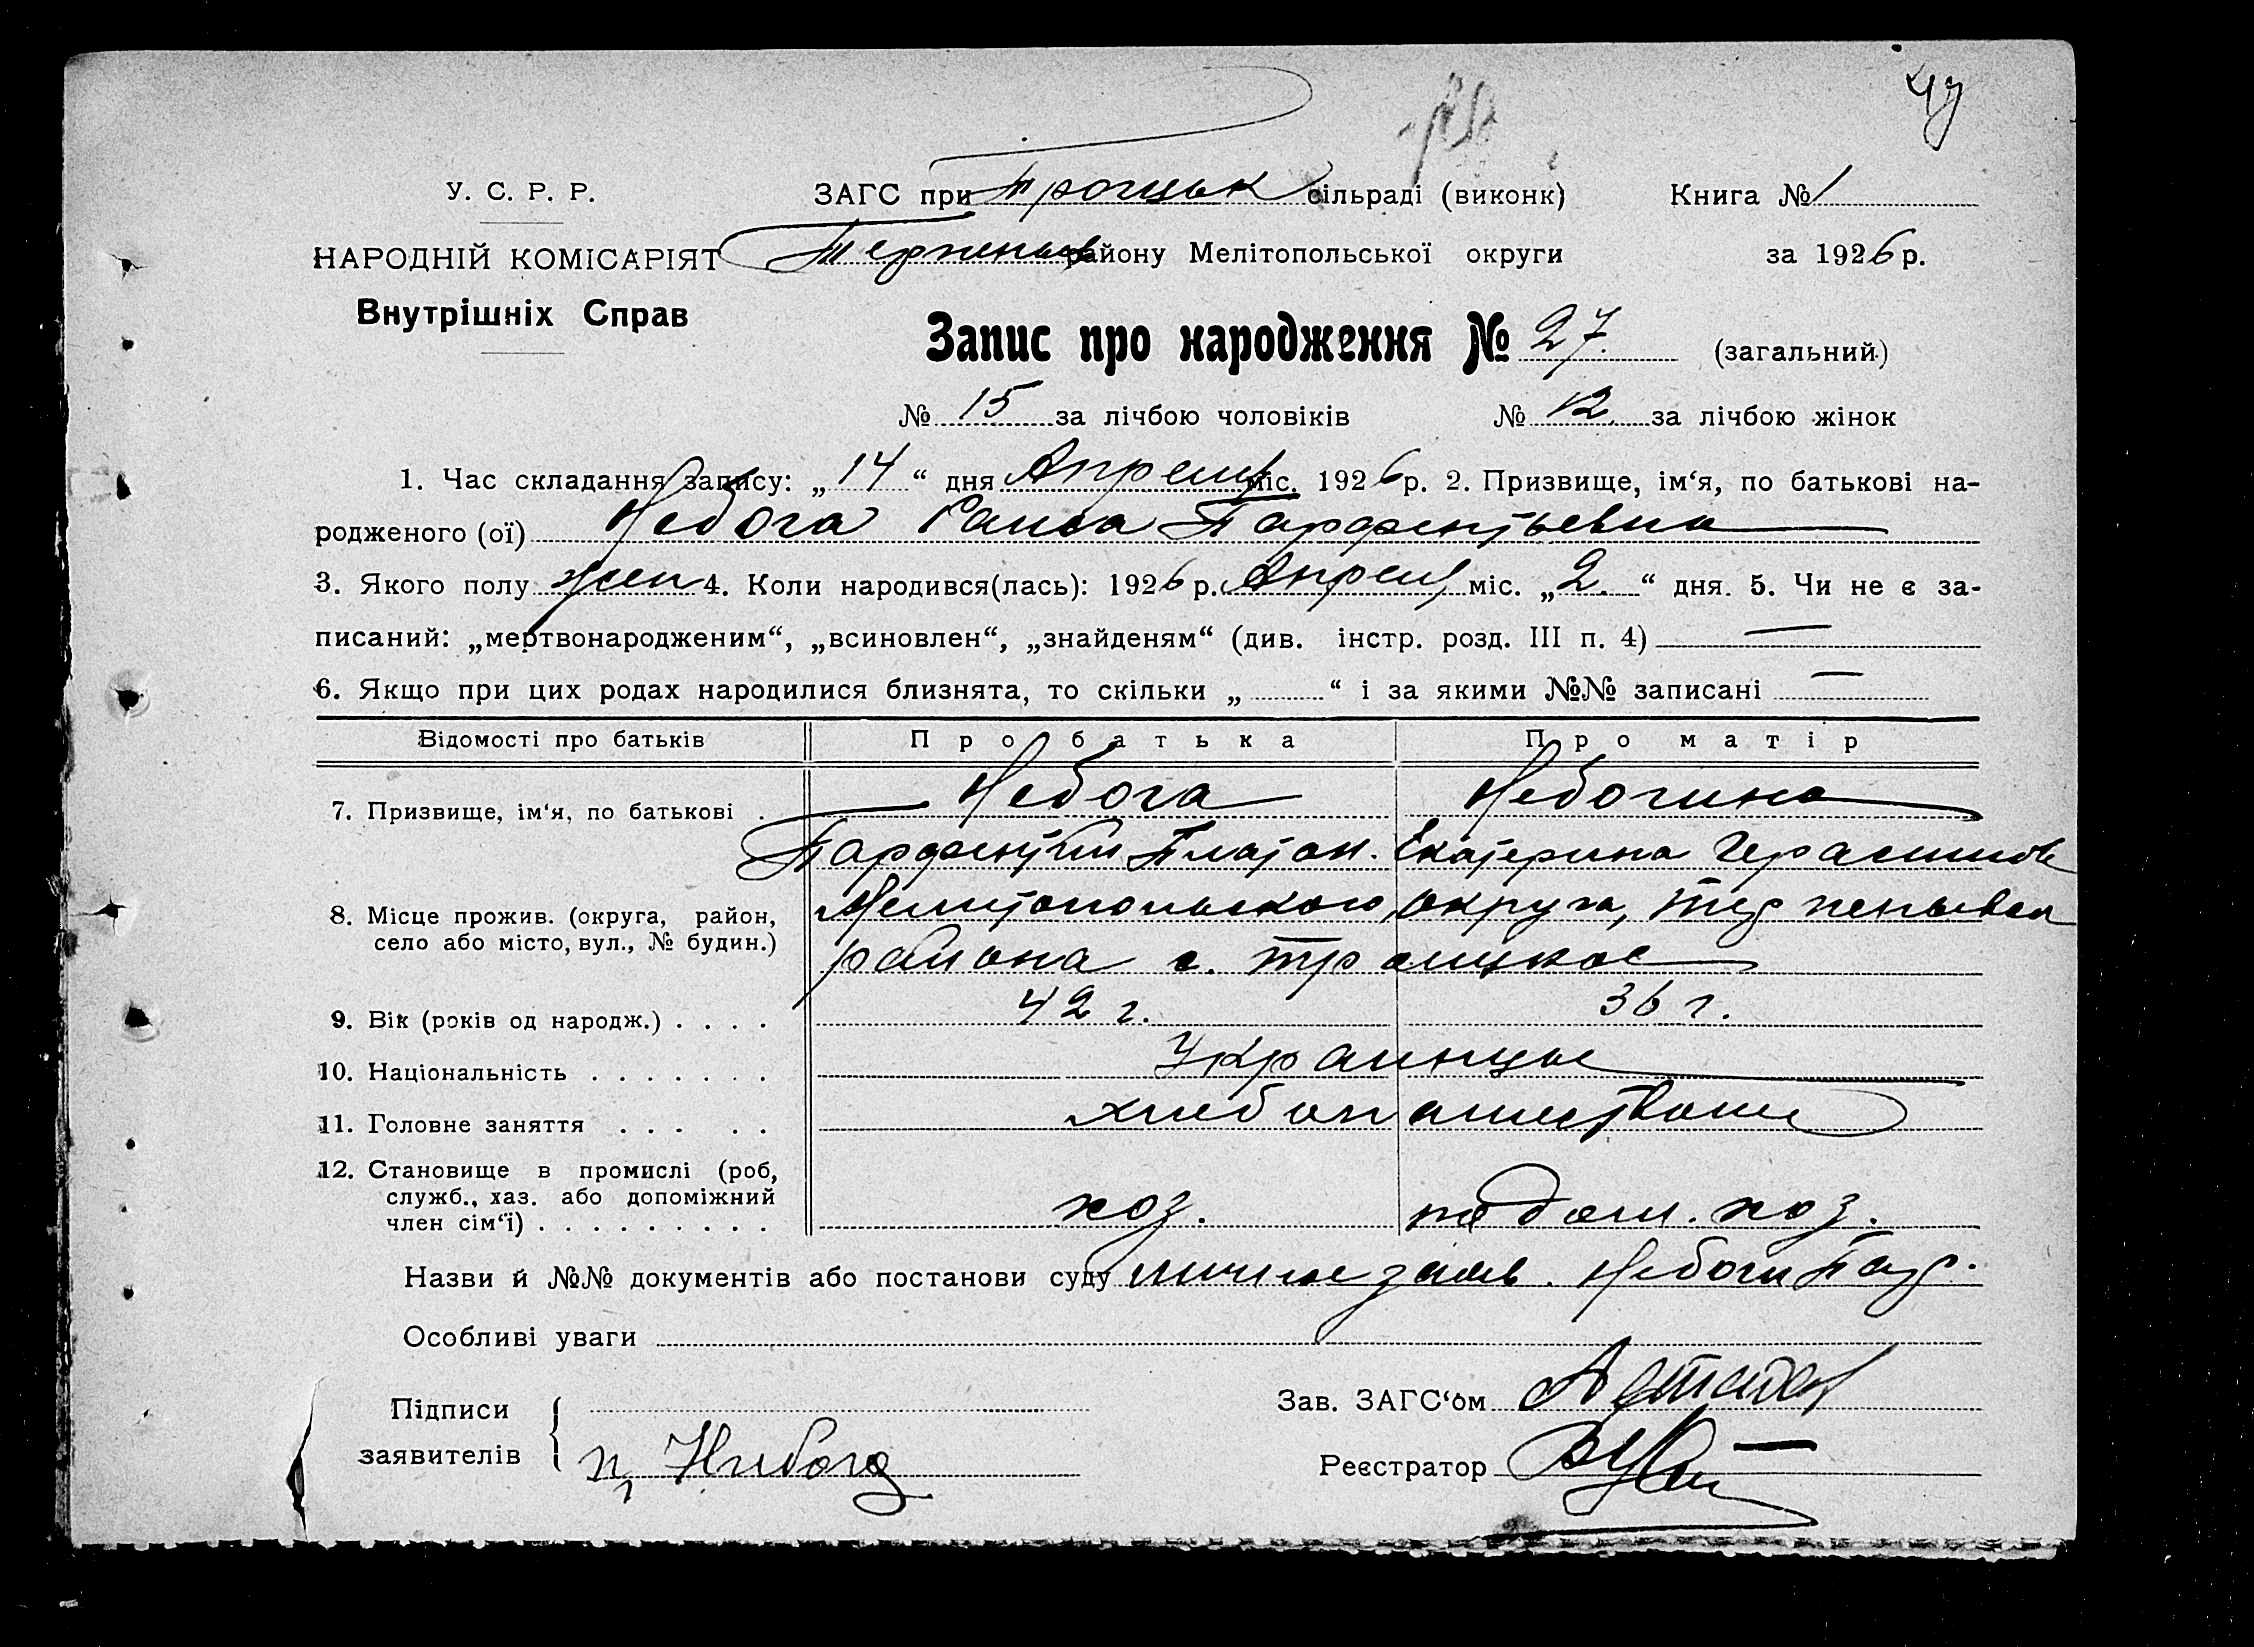 47
У. С. Р. Р. ЗАГС при Троицьк сільраді (виконк) Книга № 1
НАРОДНІЙ КОМІСАРІЯТ Терпеньев району Мелітопольської округи за 1926 р.
Внутрішніх Справ
Запис про народження № 27. (загальний)
№ 15 за лічбою чоловіків № 12 за лічбою жінок
1. Час складання запису: „14“ дня Апреля міс. 1926 р. 2. Призвище, ім‘я, по батькові на-
родженого (ої) Небога Раиса Парфентьевна
3. Якого полу жен 4. Коли народився(лась): 1926 р. Апреля міс. „2.“ дня. 5. Чи не є за-
писаний: „мертвонародженим“, „всиновлен“, „знайденям“ (див. інстр. розд. III п. 4) —
6. Якщо при цих родах народилися близнята, то скільки „ “ і за якими №№ записані —
Відомості про батьків Про батька Про матір
7. Призвище, ім‘я, по батькові . Небога Небогина
Парфентий Платон. Екатерина Герасимов
8. Місце прожив. (округа, район, Мелитопольского округа, Терпеньевск
село або місто, вул., № будин.) района с. Троицкое
9. Вік (років од народж.) . . . . 42 г. 36 г.
10. Національність . . . . . . . Украинцы
11. Головне заняття . . . . . хлебопашеством
12. Становище в промислі (роб,
служб., хаз. або допоміжний
член сім‘ї) . . . . . . . . . хоз. подом. хоз.
Назви й №№ документів або постанови суду личное заяв. Небоги Пар.
Особливі уваги
Підписи
заявителів
Зав. ЗАГС‘ом
п Нибога
Реєстратор